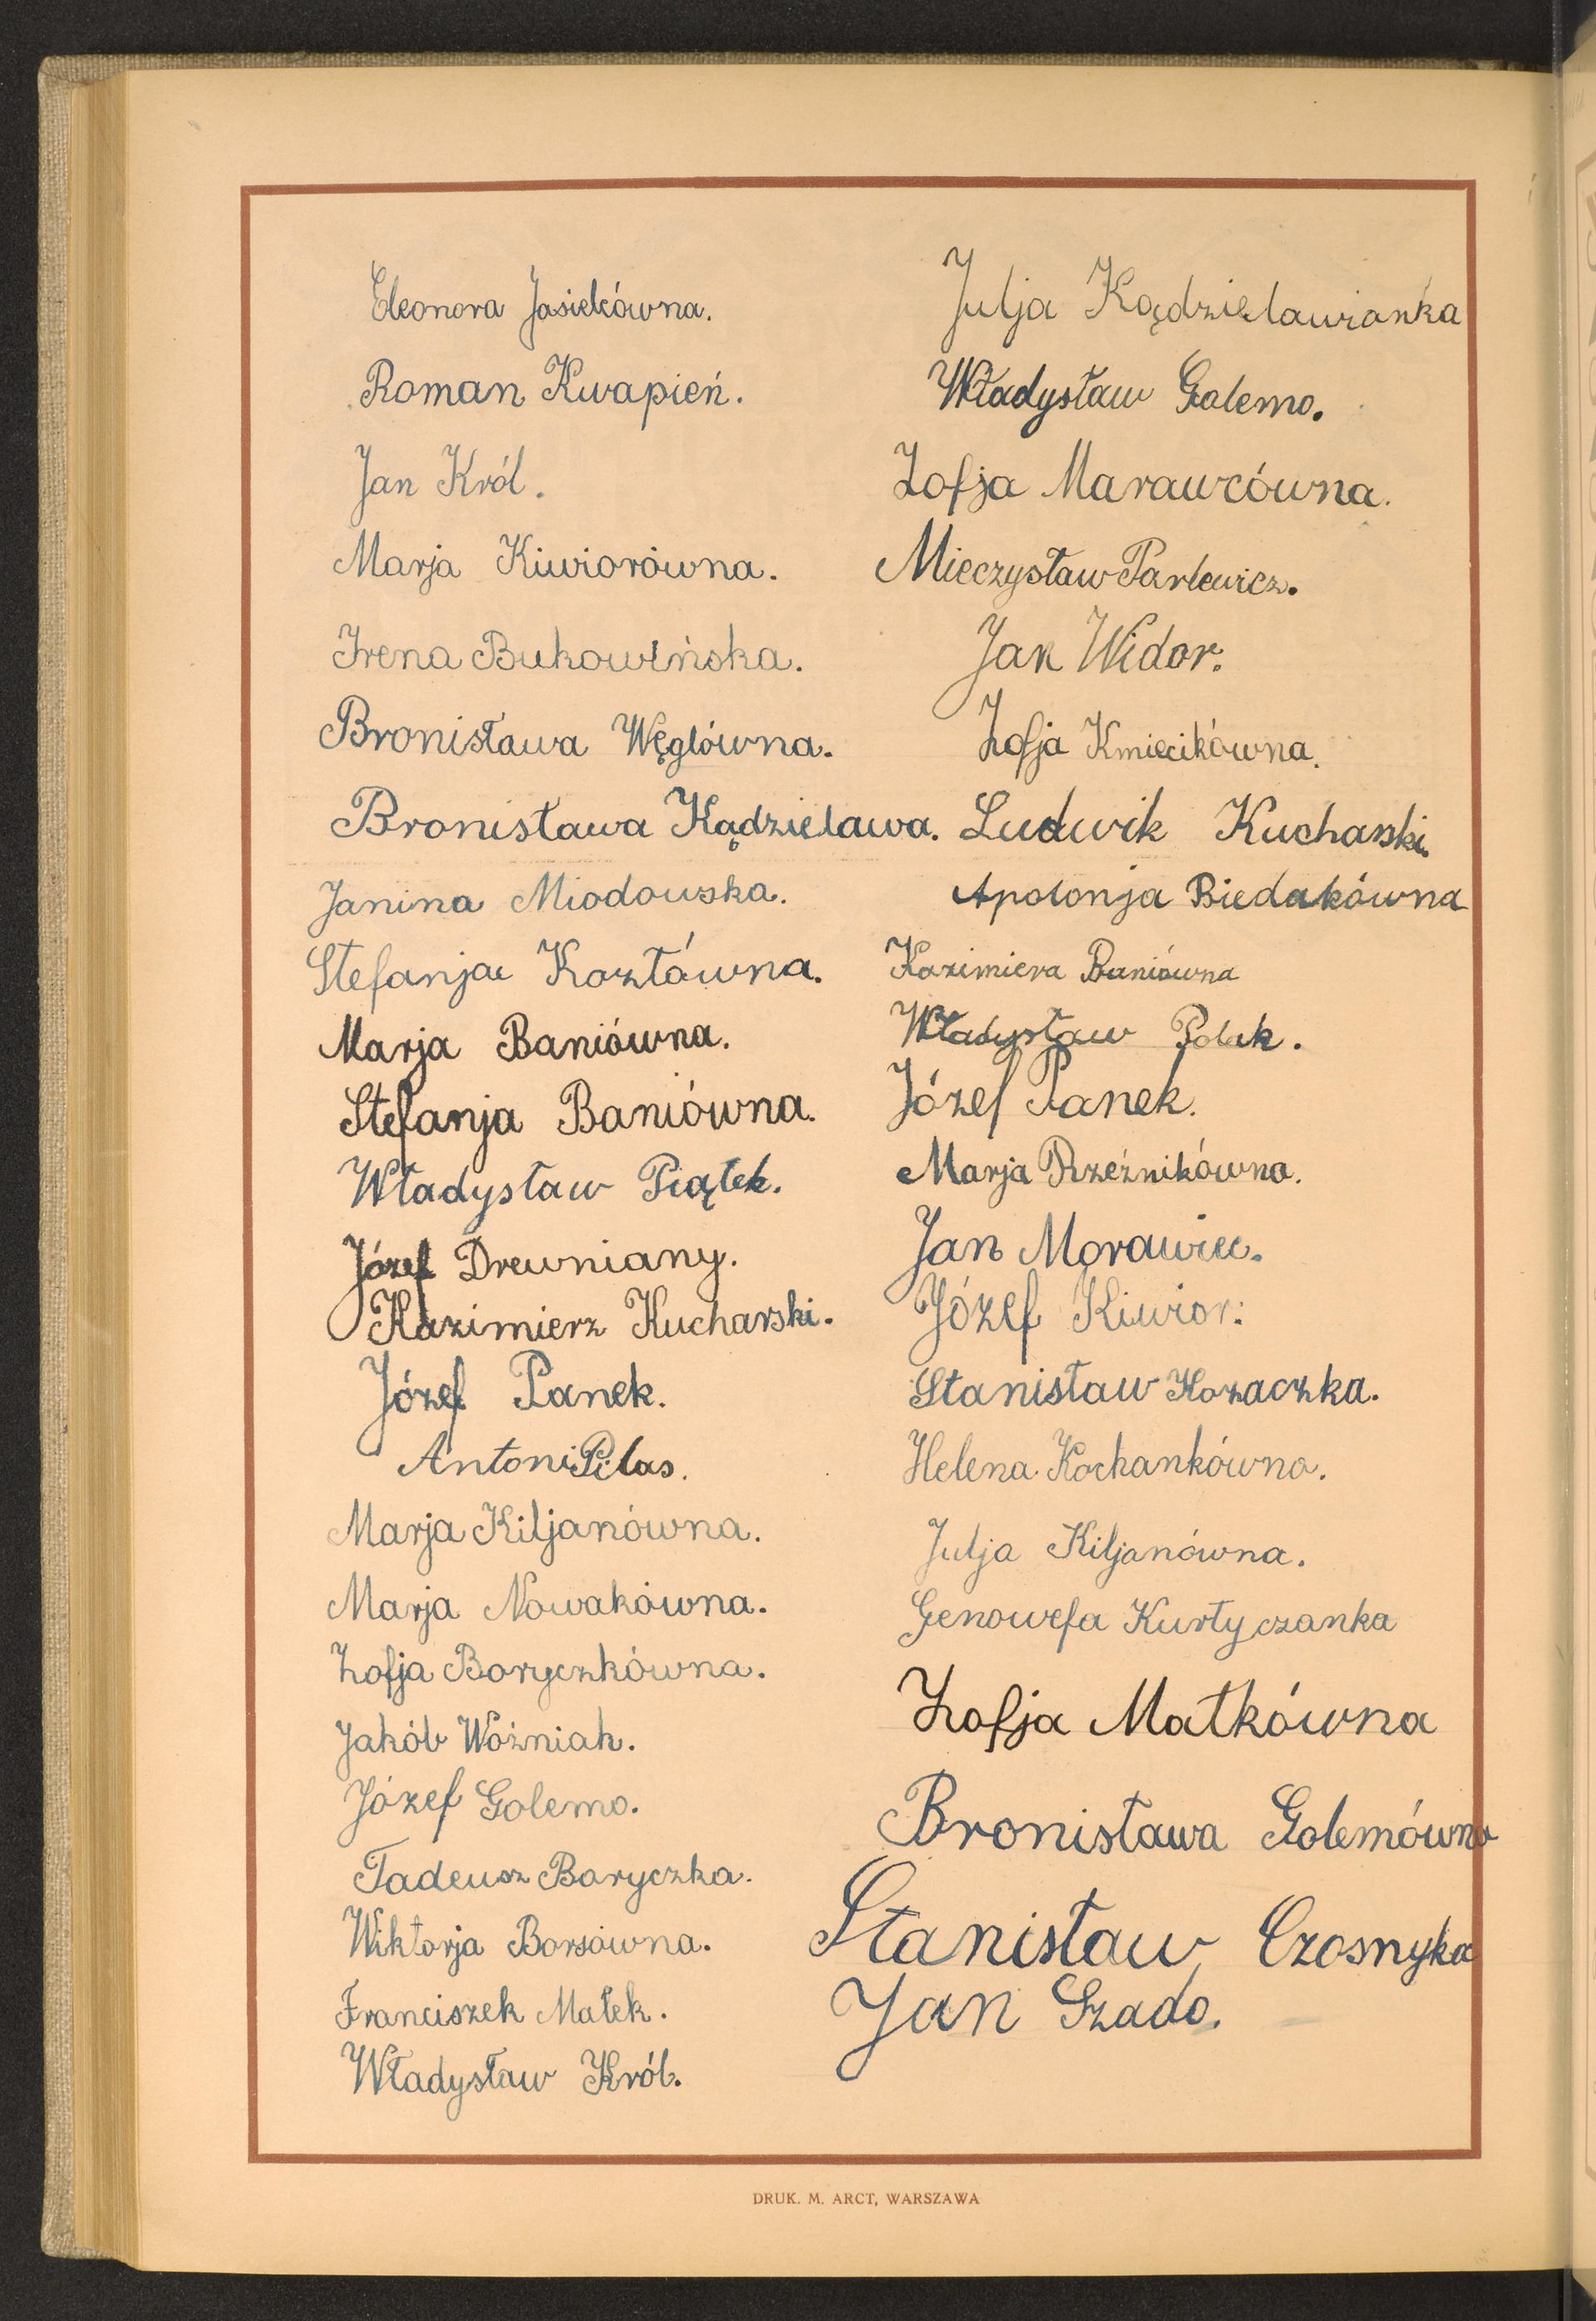 Eleonora Jasielcówna.
Roman Kwapień.
Jan Król.
Marja Kiwiorówna.
Irena Bukowińska.
Bronisława Węglówna.
Bronisława Kądzielawa.
Janina Miodowska.
Stefanja Kozłówna.
Marja Baniówna.
Stefanja Baniówna.
Władysław Piątek.
Józef Drewniany.
Kazimierz Kucharski.
Józef Panek.
Antoni Pilas.
Marja Kiljanówna.
Marja Nowakówna.
Zofja Boryczkówna.
Jakób Woźniak.
Józef Golemo.
Tadeusz Baryczka.
Wiktorja Borsówna.
Franciszek Małek.
Władysław Król.
Julja Kądzielawianka
Władysław Golemo.
Zofja Marawcówna.
Mieczysław Parlewicz.
Jan Widor.
Zofja Kmiecikówna.
Ludwik Kucharski.
Apolonja Biedakówna
Kazimiera Baniówna
Władysław Polak.
Józef Panek.
Marja Rzeźnikówna.
Jan Morawiec.
Józef Kiwior.
Stanisław Kozaczka.
Helena Kochankówna.
Julja Kiljanówna.
Genowefa Kurtyczanka
Zofja Małkówna
Bronisława Golemówna
Stanisław Czosnyka
Jan Szado.
DRUK. M. ARCT, WARSZAWA